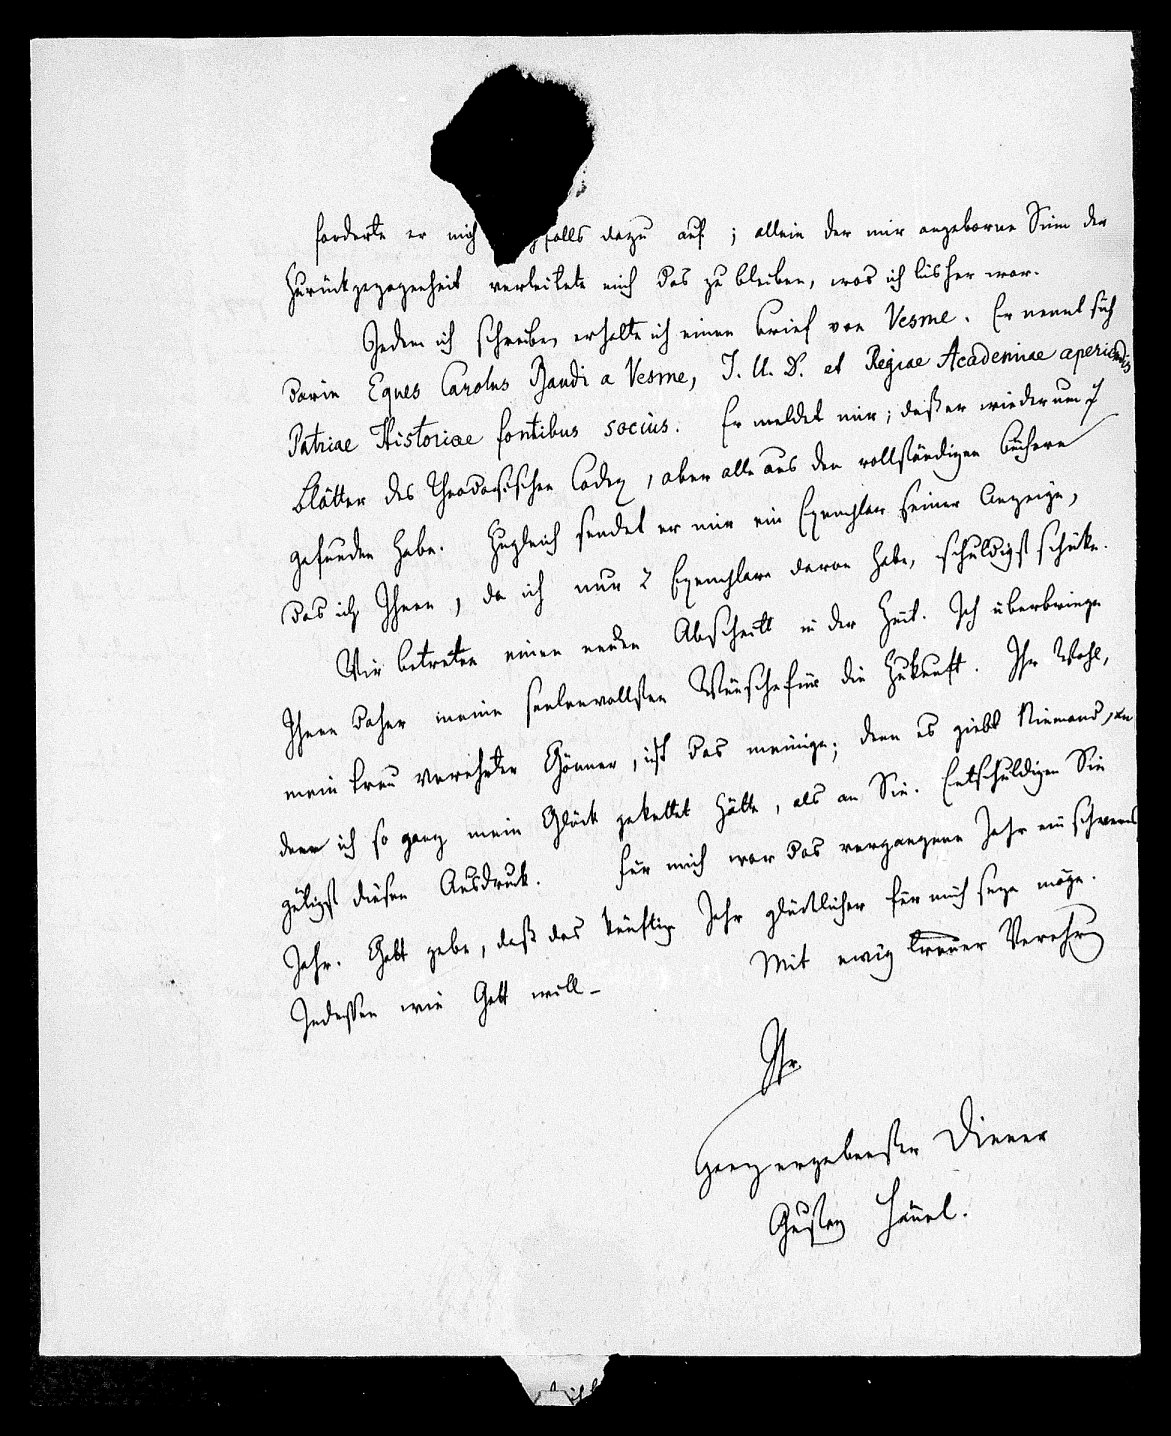 forderte er mich falls dazu auf; allein der mir angeborne Sinn der
Zurückgezogenheit verleitete mich das zu bleiben, was ich bisher war.
Indem ich schreiben erhalte ich einen Brief von Vesme. Er nennt sich
darin Eques Carolus Baudi a Vesme, I. U. D. et Regiae Academiae aperiendis
Patriae Historiae fontibus socius. Er meldet mir, daß er wiederum 7
Blätter des Theodosischen Codex, aber alle aus den vollständigen Büchern
gefunden habe. Zugleich sendet er mir ein Exemplar seiner Anzeige,
das ich Ihnen, da ich nur 2 Exemplare davon habe, schuldigst schicke.
Wir betreten einen neuen Abschnitt in der Zeit. Ich überbringe
Ihnen daher meine seelenvollsten Wünsche für die Zukunft. Ihr Wohl,
mein treu verehrter Gönner, ist das meinige; denn es giebt Niemand, an
den ich so ganz mein Glück gekettet hätte, als an Sie. Entschuldigen Sie
gütigst diesen Ausdruck. Für mich war das vergangene Jahr ein schweres
Jahr. Gott gebe, daß das künftige Jahr glücklicher für mich seyn möge.
Indessen wie Gott will –
Mit ewig treuer Verehrung
Ihr
ganz ergebenster Diener
Gustav Hänel.